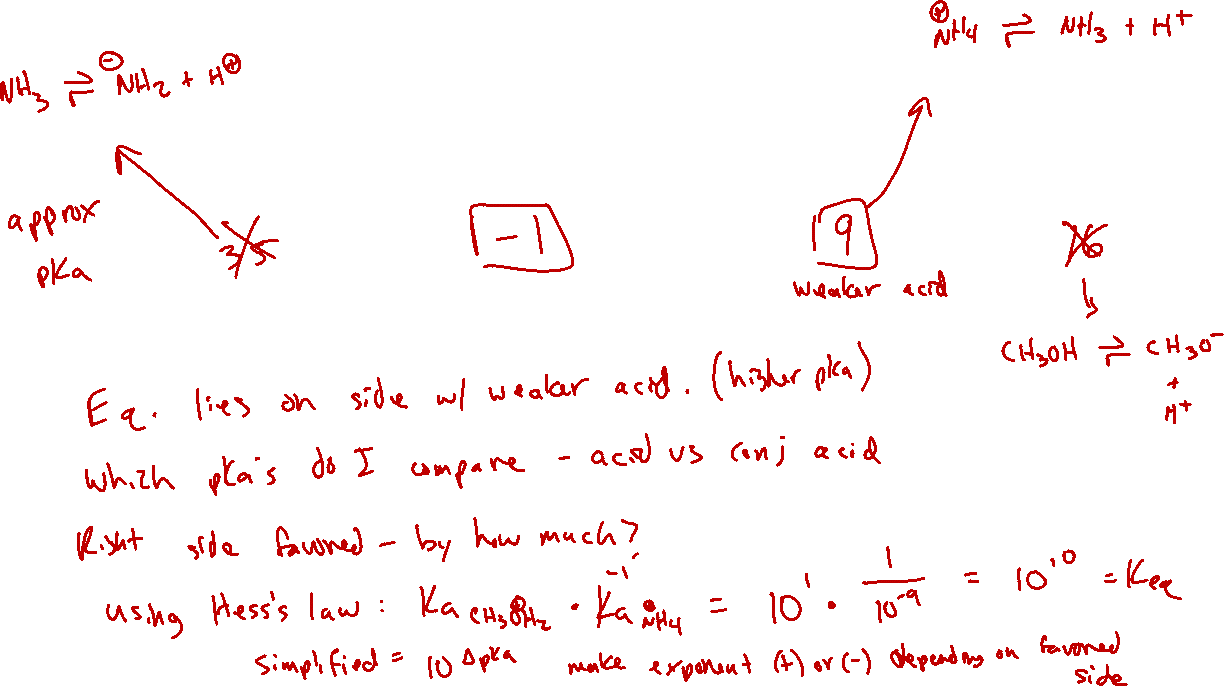 ⊕NH4 ⇌ NH3 + H+
NH3 ⇌ ⊖NH2 + H⊕
approx
pKa
35
-1
9
16
weaker acid
CH3OH ⇌ CH3O-
+
H+
Eq. lies on side w/ weaker acid. (higher pKa)
Which pKa's do I compare - acid vs conj acid
Right side favored - by how much?
using Hess's law : Ka CH3⊕OH2 · Ka⁻¹ ⊕NH4 = 10¹ · 1/10⁻⁹ = 10¹⁰ = Keq
simplified = 10^ΔpKa make exponent (+) or (-) depending on favored
side